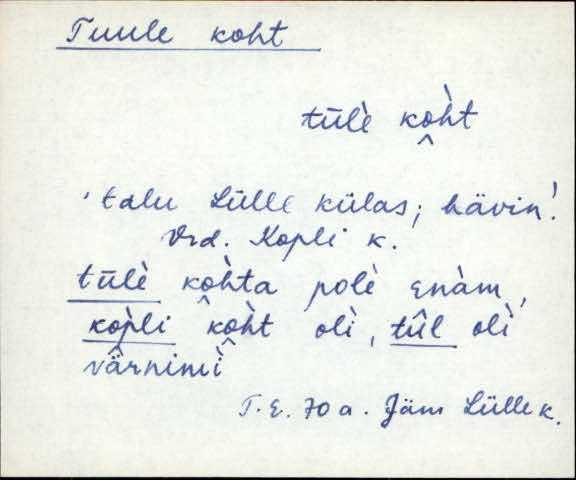 Tuule koht
tūlè ko̭h̀t
'talu Lülle külas; hävin!
Vrd. Kopli k.
tūlè ko̭h̀ta polè enàm,
kop̀li ko̭h̀t olì, tûl olì
värnimì
T.E. 70 a. Jäm Lülle k.